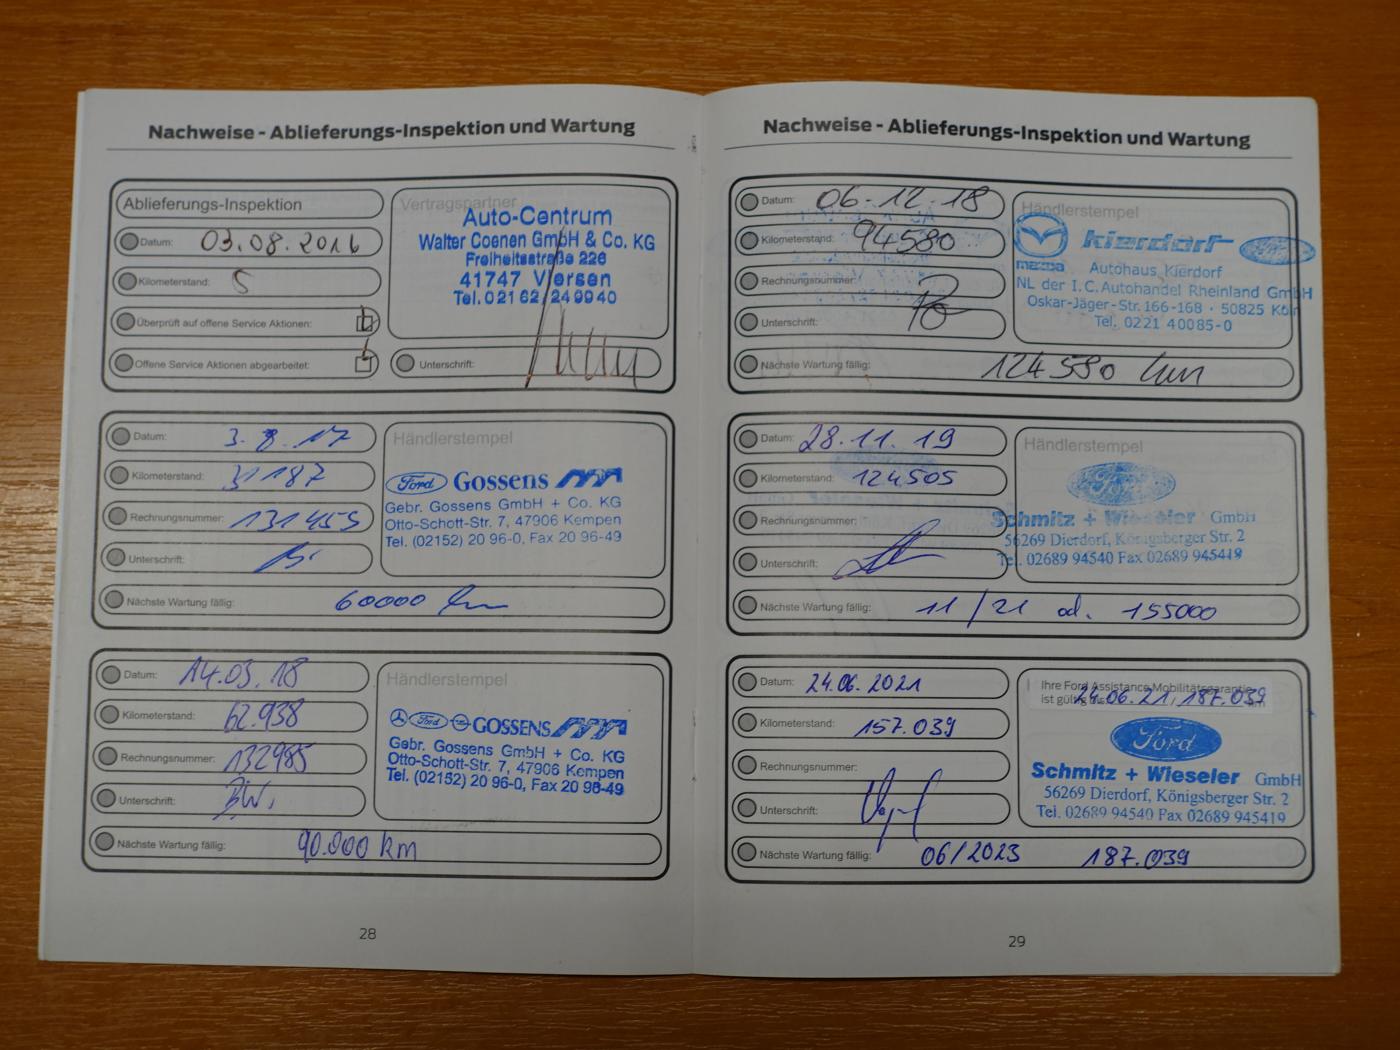 Nachweise - Ablieferungs-Inspektion und Wartung
Ablieferungs-Inspektion
Datum: 03.08.2016
Kilometerstand: 5
Überprüft auf offene Service Aktionen:
Offene Service Aktionen abgearbeitet:
Vertragspartner
Auto-Centrum
Walter Coenen GmbH & Co. KG
Freiheitsstraße 226
41747 Viersen
Tel. 02162/249940
Unterschrift:
Datum: 3.8.17
Kilometerstand: 31187
Rechnungsnummer: 131455
Unterschrift:
Händlerstempel
Ford Gossens
Gebr. Gossens GmbH + Co. KG
Otto-Schott-Str. 7, 47906 Kempen
Tel. (02152) 20 96-0, Fax 20 96-49
Nächste Wartung fällig: 60000 km
Datum: 14.03.18
Kilometerstand: 62.938
Rechnungsnummer: 132985
Unterschrift: BW.
Händlerstempel
Ford GOSSENS
Gebr. Gossens GmbH + Co. KG
Otto-Schott-Str. 7, 47906 Kempen
Tel. (02152) 20 96-0, Fax 20 96-49
Nächste Wartung fällig: 90.000 km
28
Nachweise - Ablieferungs-Inspektion und Wartung
Datum: 06.12.18
Kilometerstand: 94580
Rechnungsnummer:
Unterschrift:
Händlerstempel
mazda Kierdorf
Autohaus Kierdorf
NL der I.C.Autohandel Rheinland GmbH
Oskar-Jäger-Str. 166-168 · 50825 Köln
Tel. 0221 40085-0
Nächste Wartung fällig: 124580 km
Datum: 28.11.19
Kilometerstand: 124505
Rechnungsnummer:
Unterschrift:
Händlerstempel
Ford
Schmitz + Wieseler GmbH
56269 Dierdorf, Königsberger Str. 2
Tel. 02689 94540 Fax 02689 945419
Nächste Wartung fällig: 11/21 od. 155000
Datum: 24.06.2021
Kilometerstand: 157.039
Rechnungsnummer:
Unterschrift:
Ihre Ford Assistance Mobilitätsgarantie
ist gültig 24.06.21, 187.039 km
Ford
Schmitz + Wieseler GmbH
56269 Dierdorf, Königsberger Str. 2
Tel. 02689 94540 Fax 02689 945419
Nächste Wartung fällig: 06/2023 187.039
29